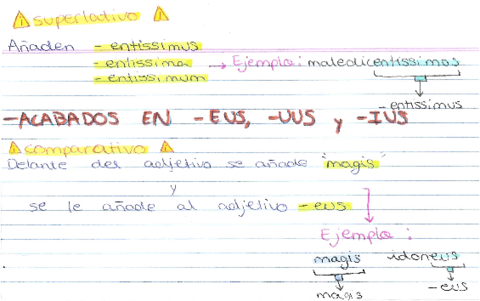 ⚠ superlativo ⚠
Añaden - entissimus
- entissima → Ejemplo: maledicentissimos
- entissimum
- entissimus
-ACABADOS EN -EUS, -UUS y -IUS
⚠ comparativo ⚠
Delante del adjetivo se añade "magis"
y
se le añade al adjetivo -eus
Ejemplo:
magis idoneus
magis -eus